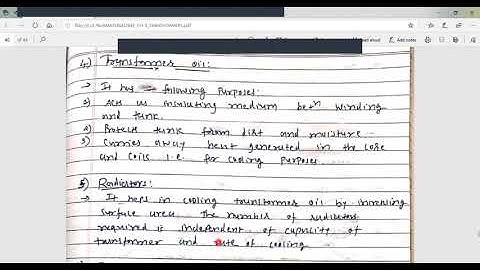 4) Transformer oil:
→ It has following purposes:
1) Acts as insulating medium betn winding
and tank.
2) Protect tank from dirt and moisture
3) Carries away heat generated in the core
and coils i.e. for cooling purposes.
5) Radiators:
→ It heps in cooling transformer oil by increasing
surface area. The number of radiators
required is independent of capacity of
transformer and rate of cooling